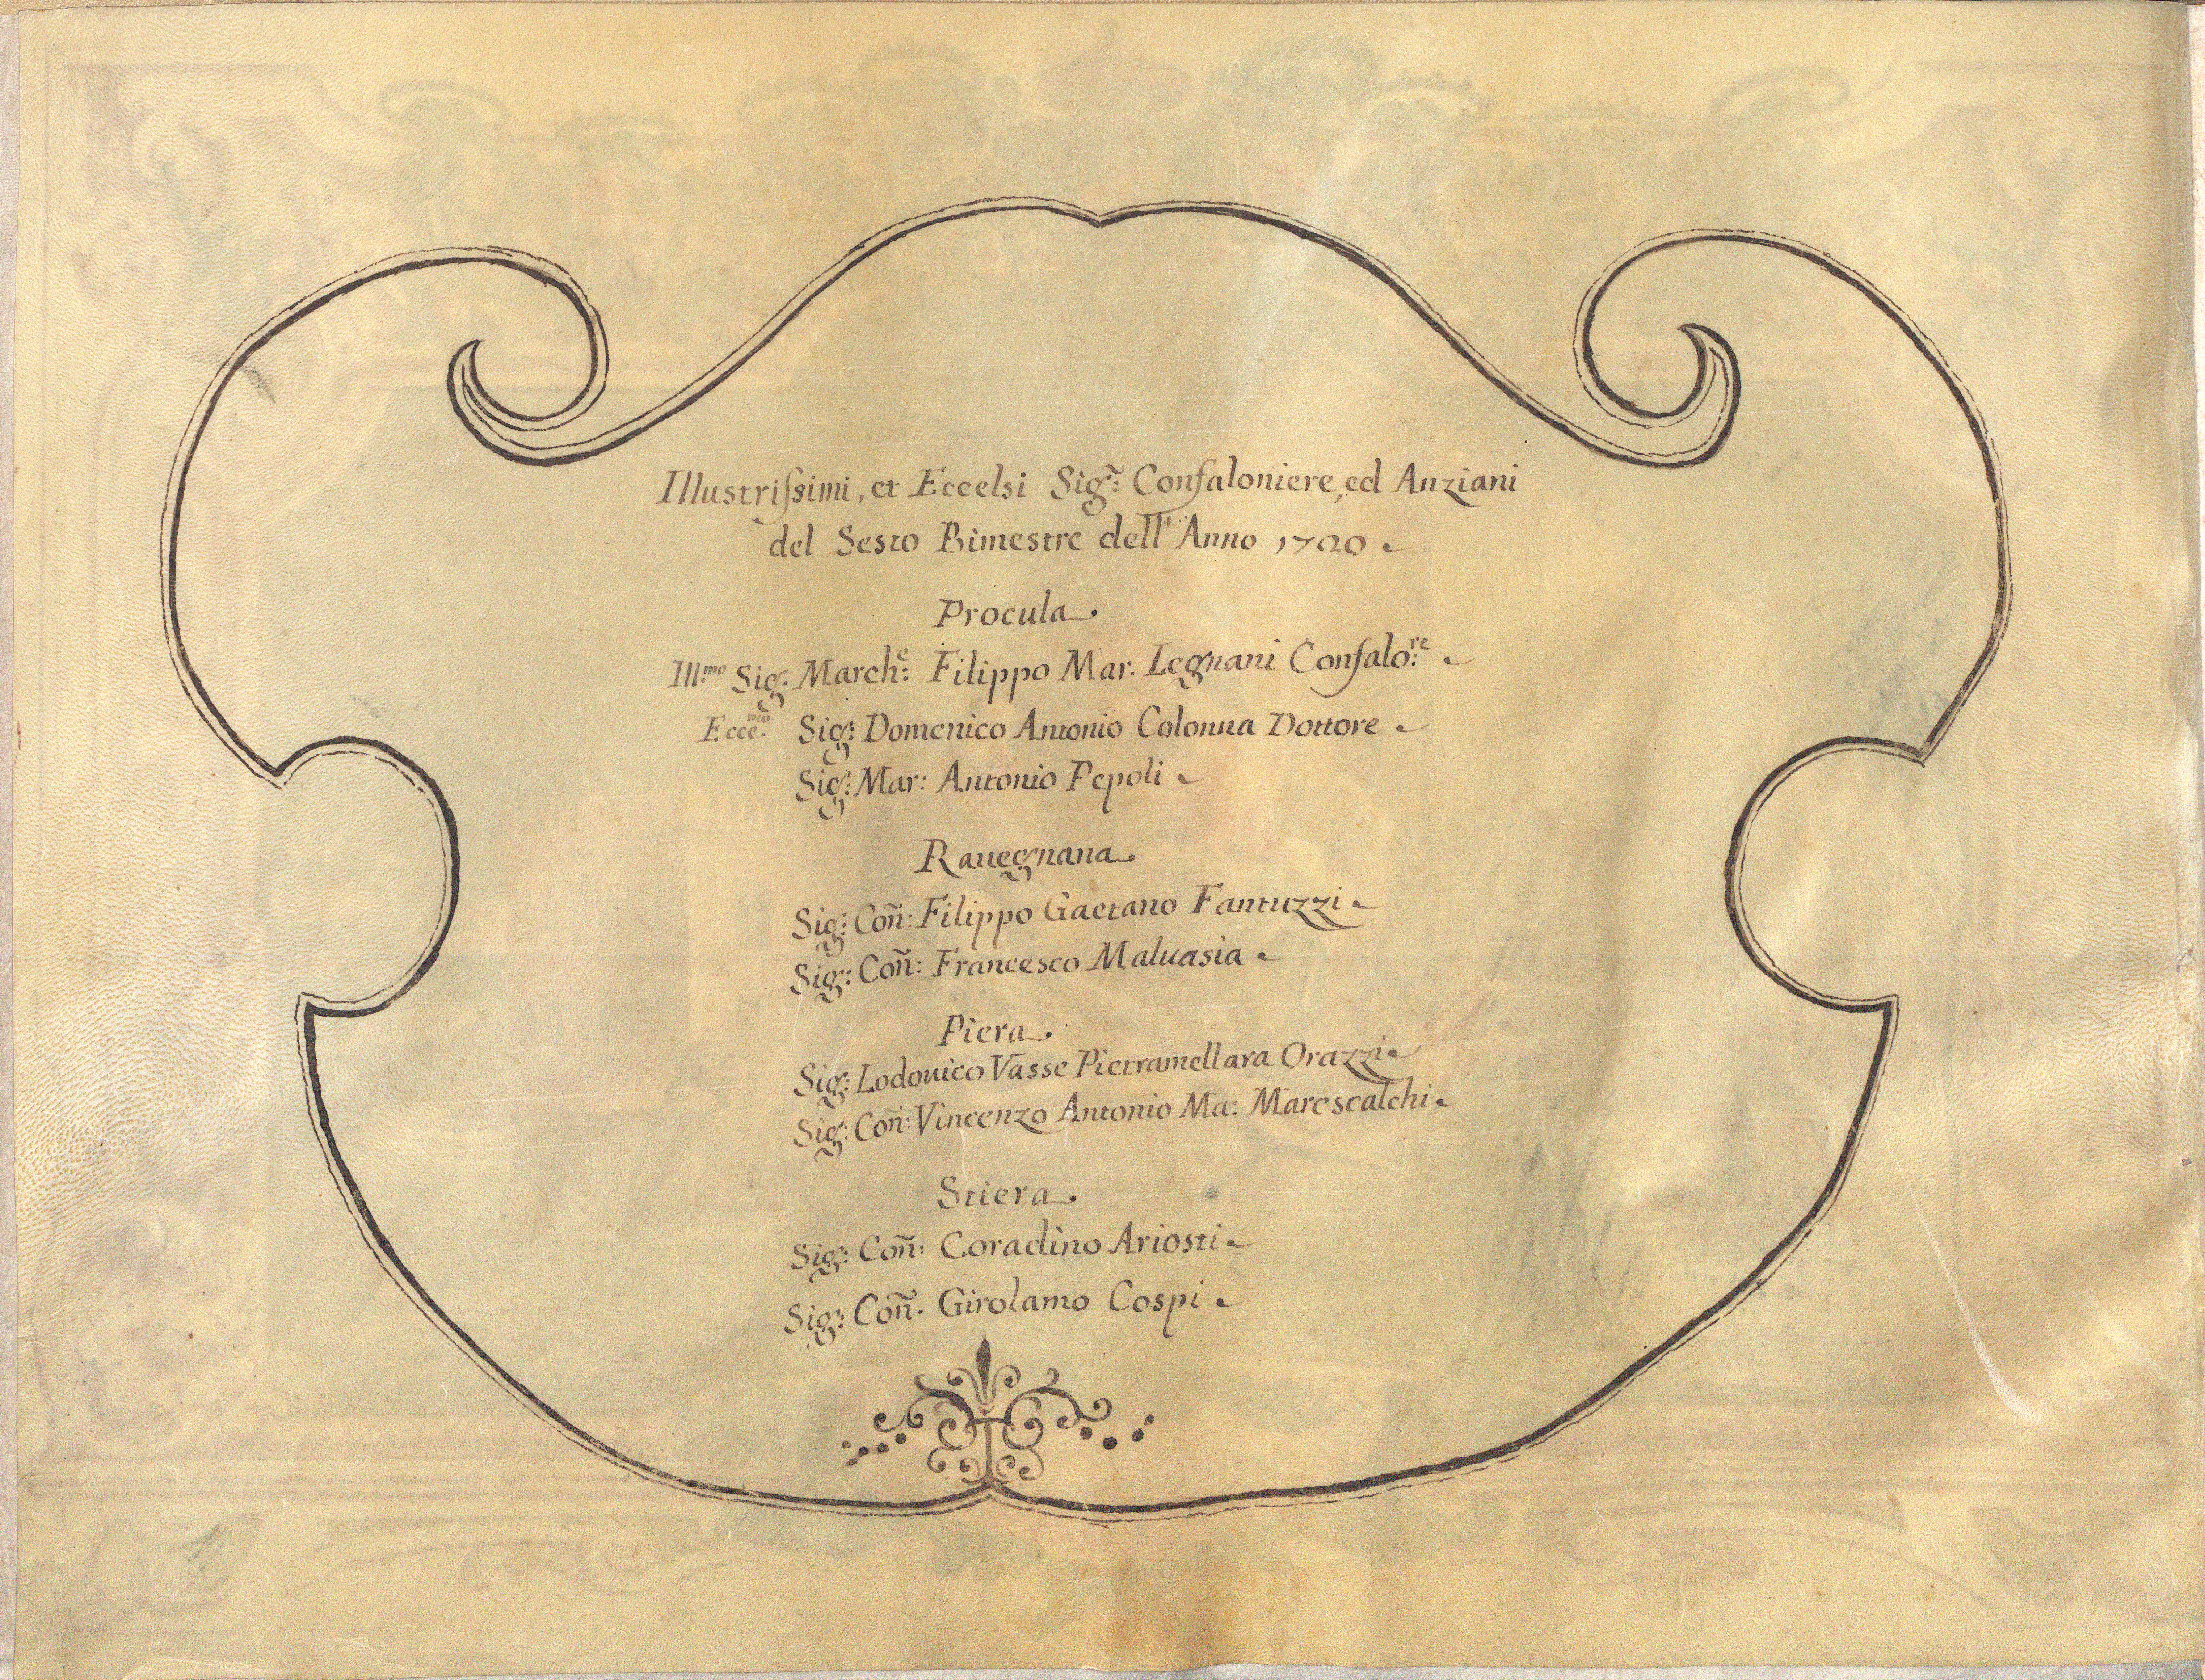 Illustriſsimi, et Eccelsi Sig.̃: Confaloniere, ed Anziani
del Sesto Bimestre dell' Anno 1720
Procula
Ill.mo Sig: March.e: Filippo Mar. Legnani Confalo:re
Ecce.mo Sig: Domenico Antonio Colonna Dottore
Sig: Mar: Antonio Pepoli
Rauegnana
Sig: Coñ: Filippo Gaetano Fantuzzi
Sig: Coñ: Francesco Maluasia
Piera
Sig: Lodouico Vasse Pietramellara Orazzi
Sig: Coñ: Vincenzo Antonio Ma: Marescalchi
Stiera
Sig: Coñ: Coradino Ariosti
Sig: Coñ. Girolamo Cospi